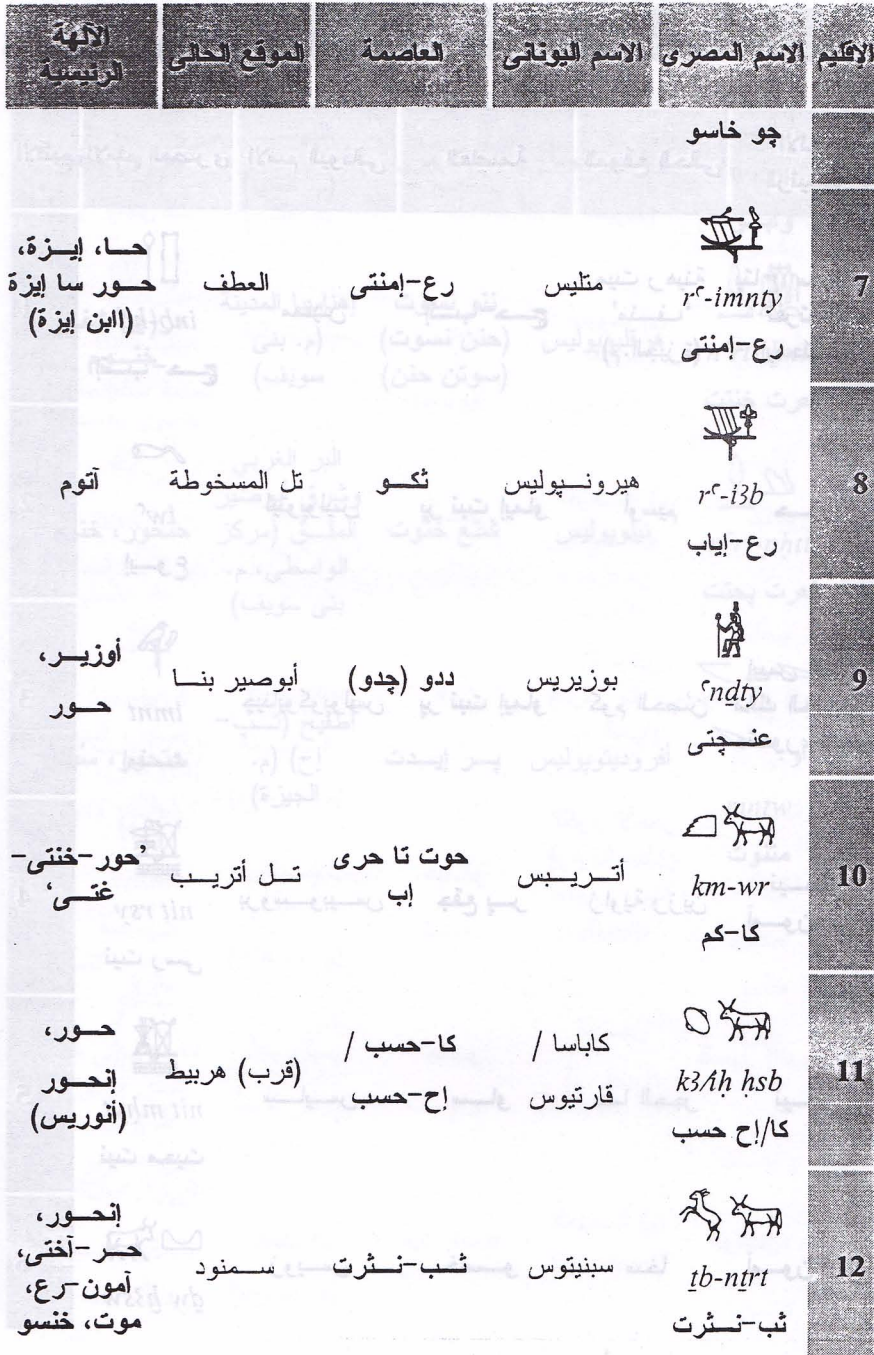 الإقليم الاسم المصرى الاسم اليونانى العاصمة الموقع الحالى الآلهة الرئيسية
چو خاسو
7
rꜥ-imnty
رع-إمنتى
متليس
رع-إمنتى
العطف
حـا، إيـزة،
حـور سا إيزة
(اابن إيزة)
8
rꜥ-i3b
رع-إياب
هيرونـپوليس
ثكـو
تل المسخوطة
آتوم
9
ꜥnḏty
عنـچتى
بوزيريس
ددو (چدو)
أبوصير بنـا
أوزيـر،
حـور
10
km-wr
كا-كم
أتـريـبس
حوت تا حرى
إب
تـل أتريـب
’حور-خنتى-
غتـى‘
11
k3/iḥ ḥsb
كا/إح حسب
كاباسا /
قارتيوس
كا-حسب /
إح-حسب
(قرب) هربيط
حـور،
إنحـور
(أنوريس)
12
ṯb-nṯrt
ثب-نـثرت
سبنيتوس
ثـب-نـثرت
سـمنود
إنحـور،
حـر-آختى،
آمون-رع،
موت، خنسو